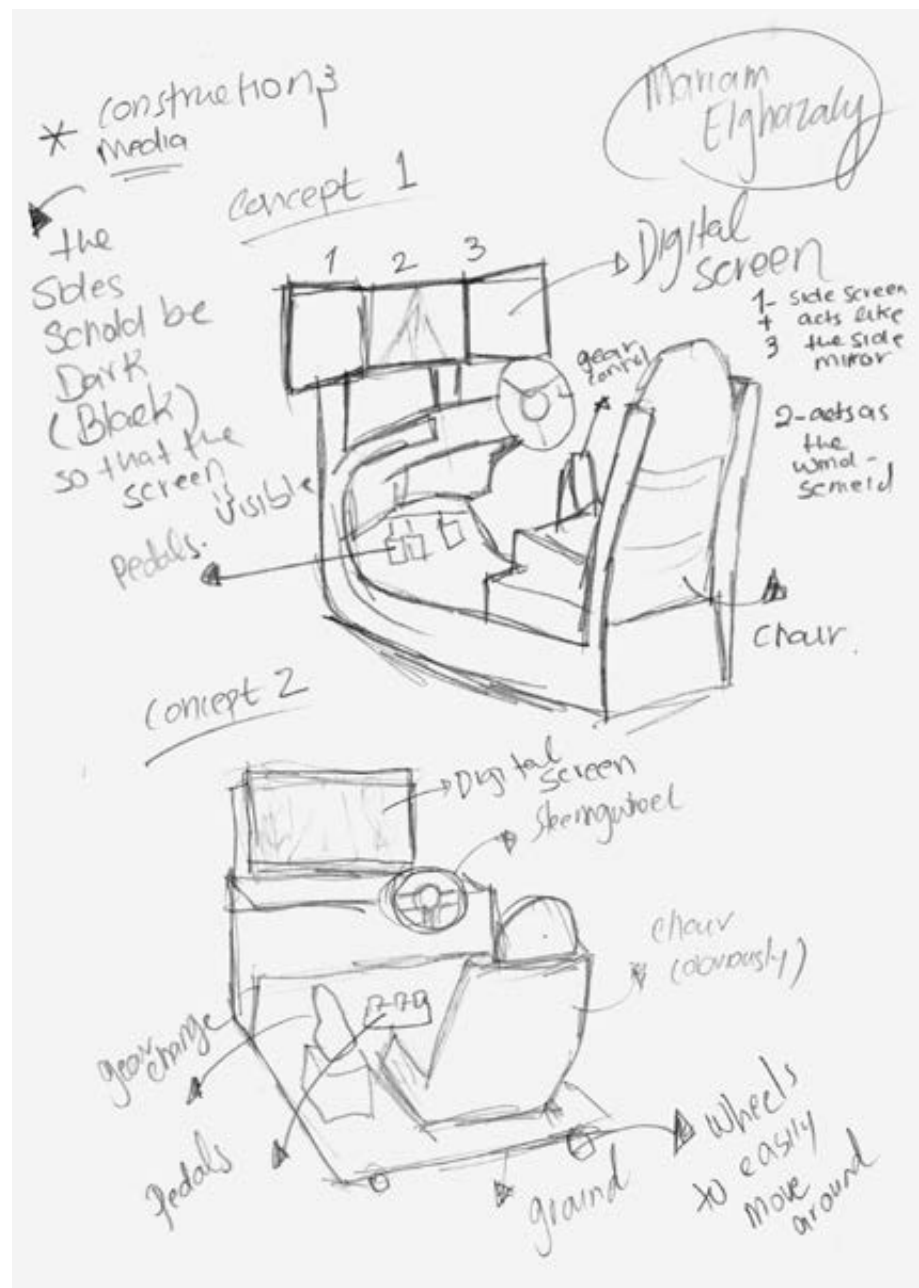 * construction3
Media
Mariam
Elghazaly
Concept 1
the
Sides
Schold be
Dark
(Black)
so that the
screen
is visible
1 2 3
Digital
screen
1- side screen
+ acts like
3 the side
mirror
2- acts as
the
wind-
scheild
gear
control
Pedals.
Chair.
Concept 2
Digital
screen
Steeringwheel
Chair
(obviously)
gear
change
Pedals
ground
wheels
to easily
move
around